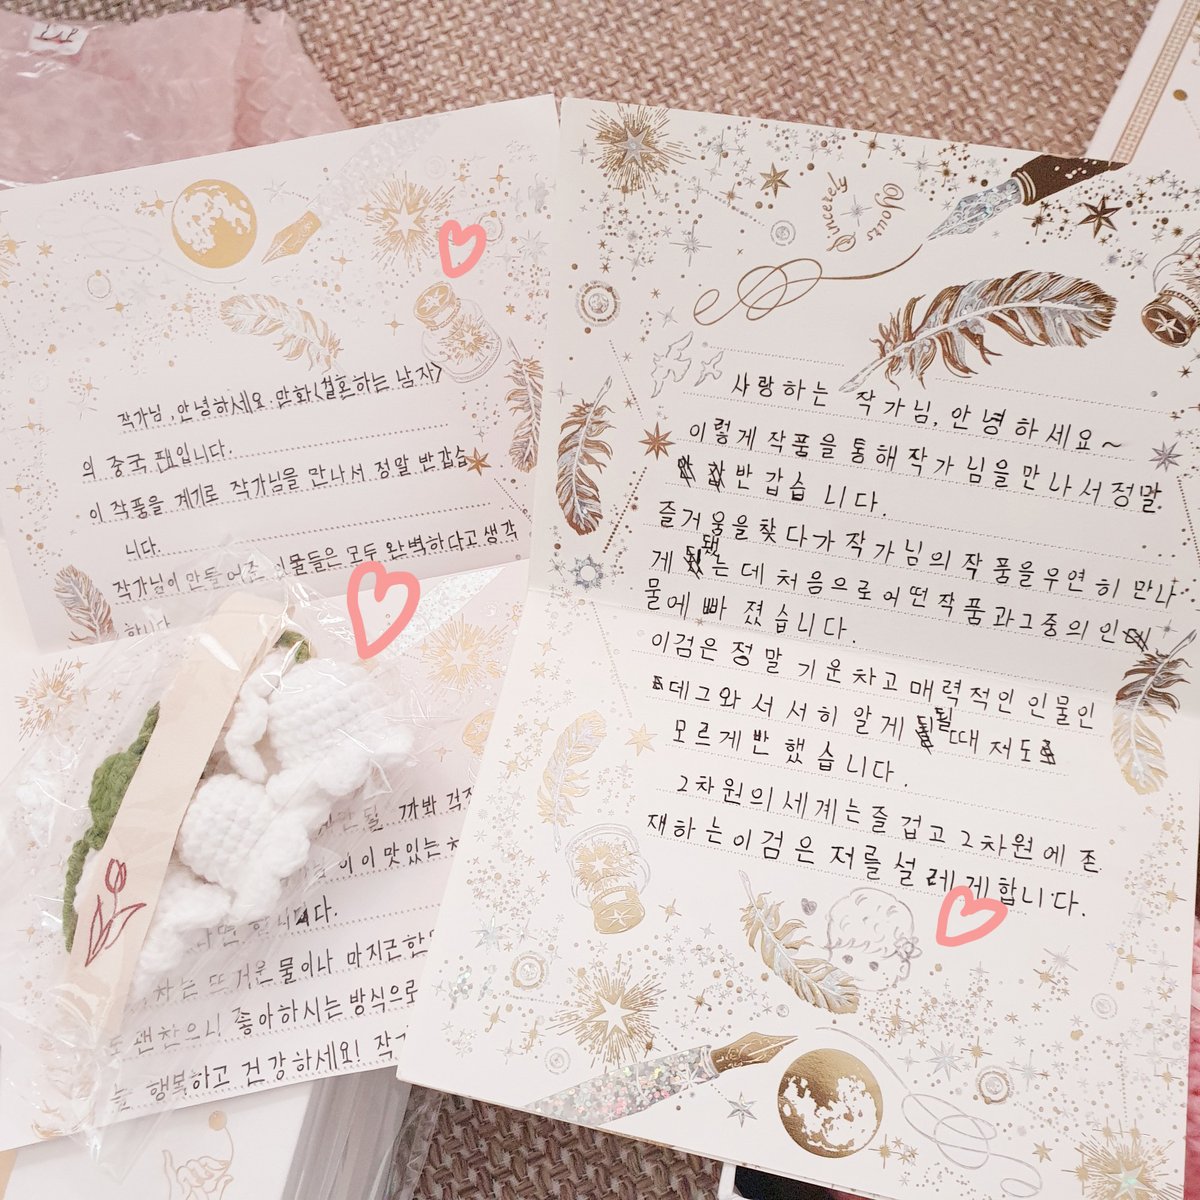 작가님, 안녕하세요. 만화<결혼하는 남자>
의 중국 팬입니다.
이 작품을 계기로 작가님을 만나서 정말 반갑습
니다.
작가님이 만들어준 인물들은 모두 완벽하다고 생각
합니다
까봐 걱정
이 맛있는
니다.
차는 뜨거운 물이나 미지근한
도 괜찮으니 좋아하시는 방식으로
늘 행복하고 건강하세요! 작가
Yours
Sincerely
사랑하는 작가님, 안녕하세요~
이렇게 작품을 통해 작가님을 만나서 정말
반갑습니다.
즐거움을 찾다가 작가님의 작품을 우연히 만나
게 됐는데 처음으로 어떤 작품과 그중의 인
물에 빠졌습니다.
이검은 정말 기운차고 매력적인 인물인
데 그와 서서히 알게 될 때 저도
모르게 반했습니다.
2차원의 세계는 즐겁고 2차원에 존
재하는 이검은 저를 설레게 합니다.